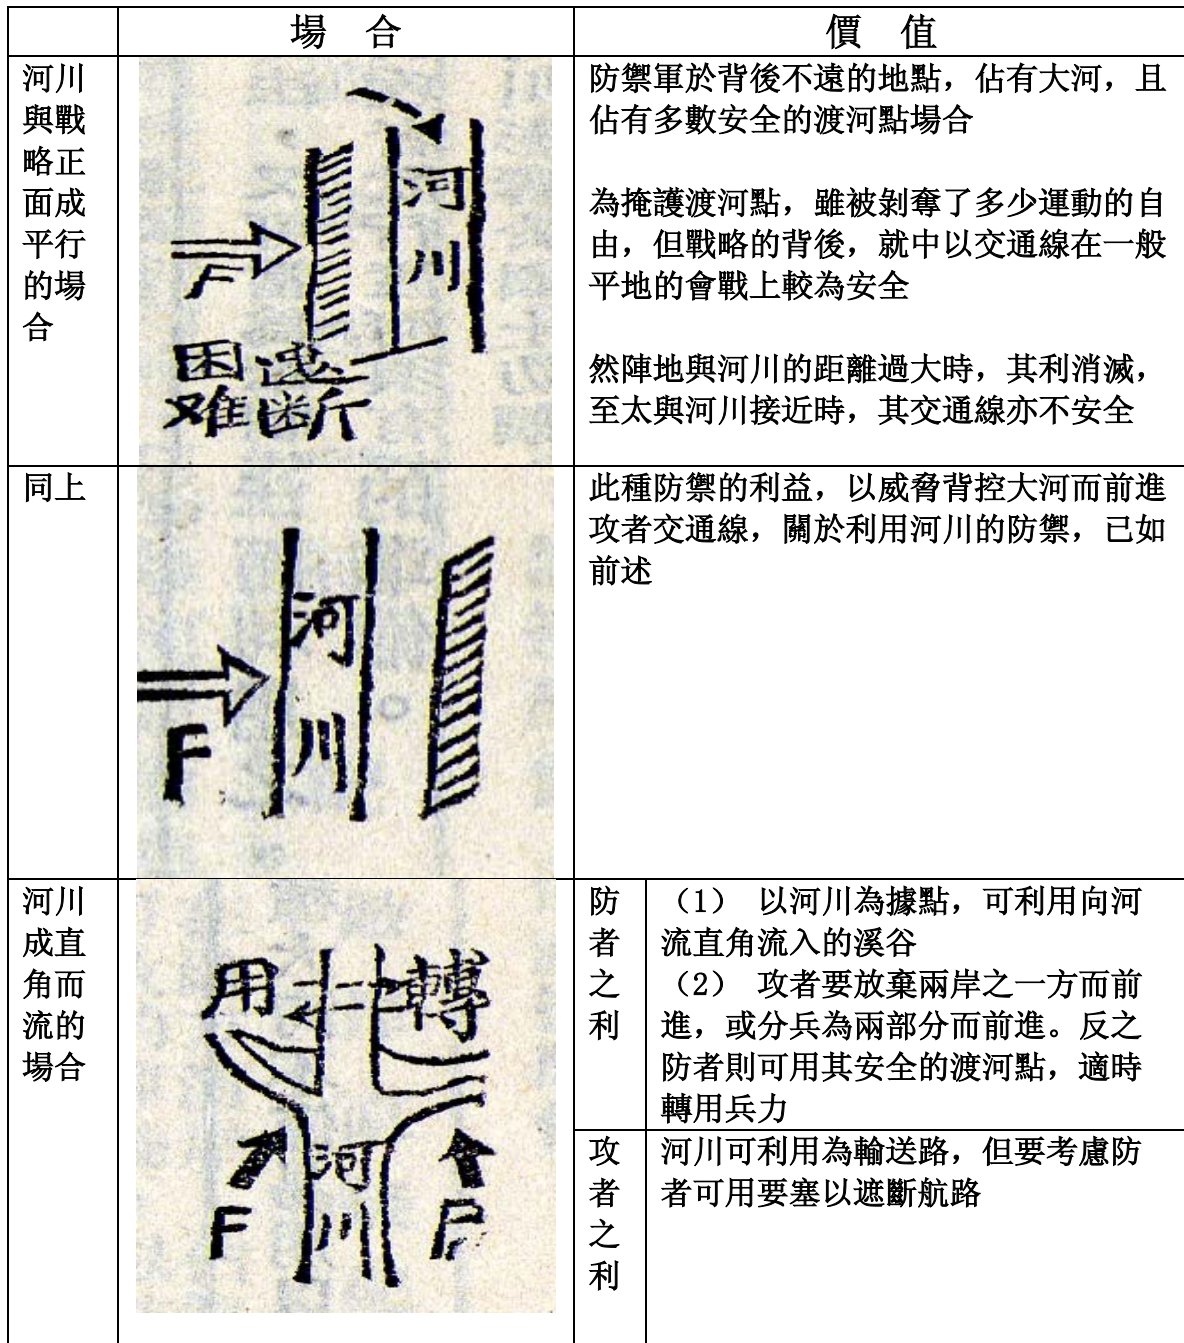 場　合
價　值
河川
與戰
略正
面成
平行
的場
合
河
川
F
困遮
难断
防禦軍於背後不遠的地點，佔有大河，且
佔有多數安全的渡河點場合
為掩護渡河點，雖被剝奪了多少運動的自
由，但戰略的背後，就中以交通線在一般
平地的會戰上較為安全
然陣地與河川的距離過大時，其利消滅，
至太與河川接近時，其交通線亦不安全
同上
河
川
F
此種防禦的利益，以威脅背控大河而前進
攻者交通線，關於利用河川的防禦，已如
前述
河川
成直
角而
流的
場合
用
轉
河
川
F
F
防
者
之
利
（1） 以河川為據點，可利用向河
流直角流入的溪谷
（2） 攻者要放棄兩岸之一方而前
進，或分兵為兩部分而前進。反之
防者則可用其安全的渡河點，適時
轉用兵力
攻
者
之
利
河川可利用為輸送路，但要考慮防
者可用要塞以遮斷航路